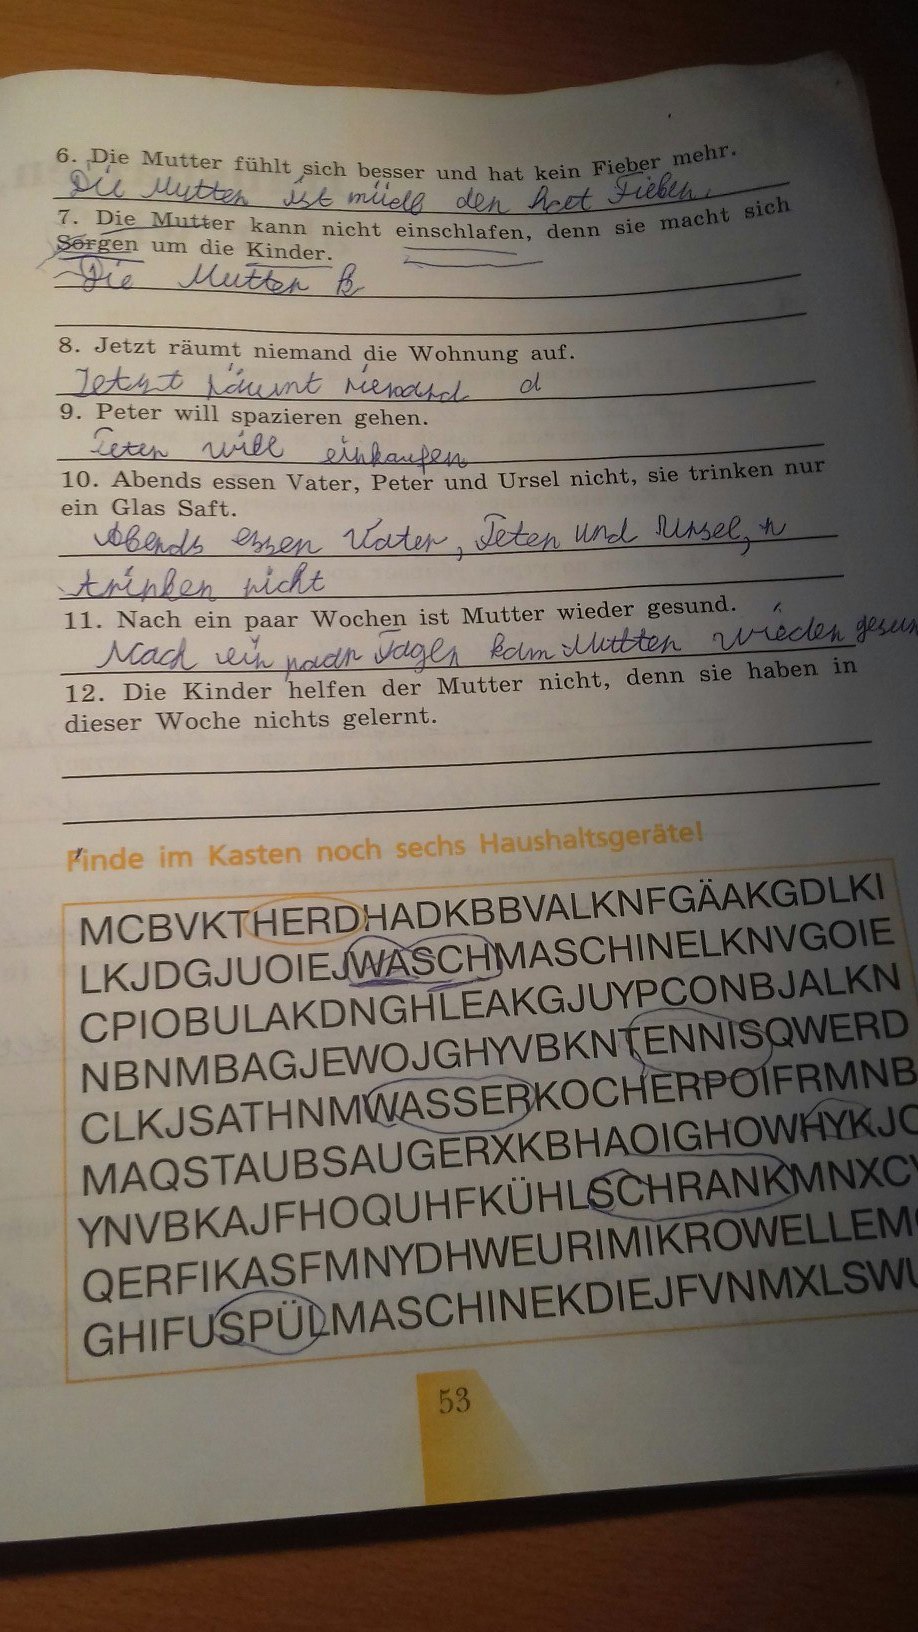 6. Die Mutter fühlt sich besser und hat kein Fieber mehr.
Die Mutter ist müde den hat Fieber
7. Die Mutter kann nicht einschlafen, denn sie macht sich
Sorgen um die Kinder.
Die Mutter k
8. Jetzt räumt niemand die Wohnung auf.
Jetzt räumt niemand d
9. Peter will spazieren gehen.
Peter will einkaufen
10. Abends essen Vater, Peter und Ursel nicht, sie trinken nur
ein Glas Saft.
Abends essen Vater, Peter und Ursel,
trinken nicht
11. Nach ein paar Wochen ist Mutter wieder gesund.
Nach ein paar Tagen kam Mutter wieder gesun
12. Die Kinder helfen der Mutter nicht, denn sie haben in
dieser Woche nichts gelernt.
Finde im Kasten noch sechs Haushaltsgeräte!
MCBVKTHERDHADKBBVALKNFGÄAKGDLKI
LKJDGJUOIEJWASCHMASCHINELKNVGOIE
CPIOBULAKDNGHLEAKGJUYPCONBJALKN
NBNMBAGJEWOJGHYVBKNTENNISQWERD
CLKJSATHNMWASSERKOCHERPOIFRMNB
MAQSTAUBSAUGERXKBHAOIGHOWHYKJO
YNVBKAJFHOQUHFKÜHLSCHRANKMNXCV
QERFIKASFMNYDHWEURIMIKROWELLEM
GHIFUSPÜLMASCHINEKDIEJFVNMXLSWU
53